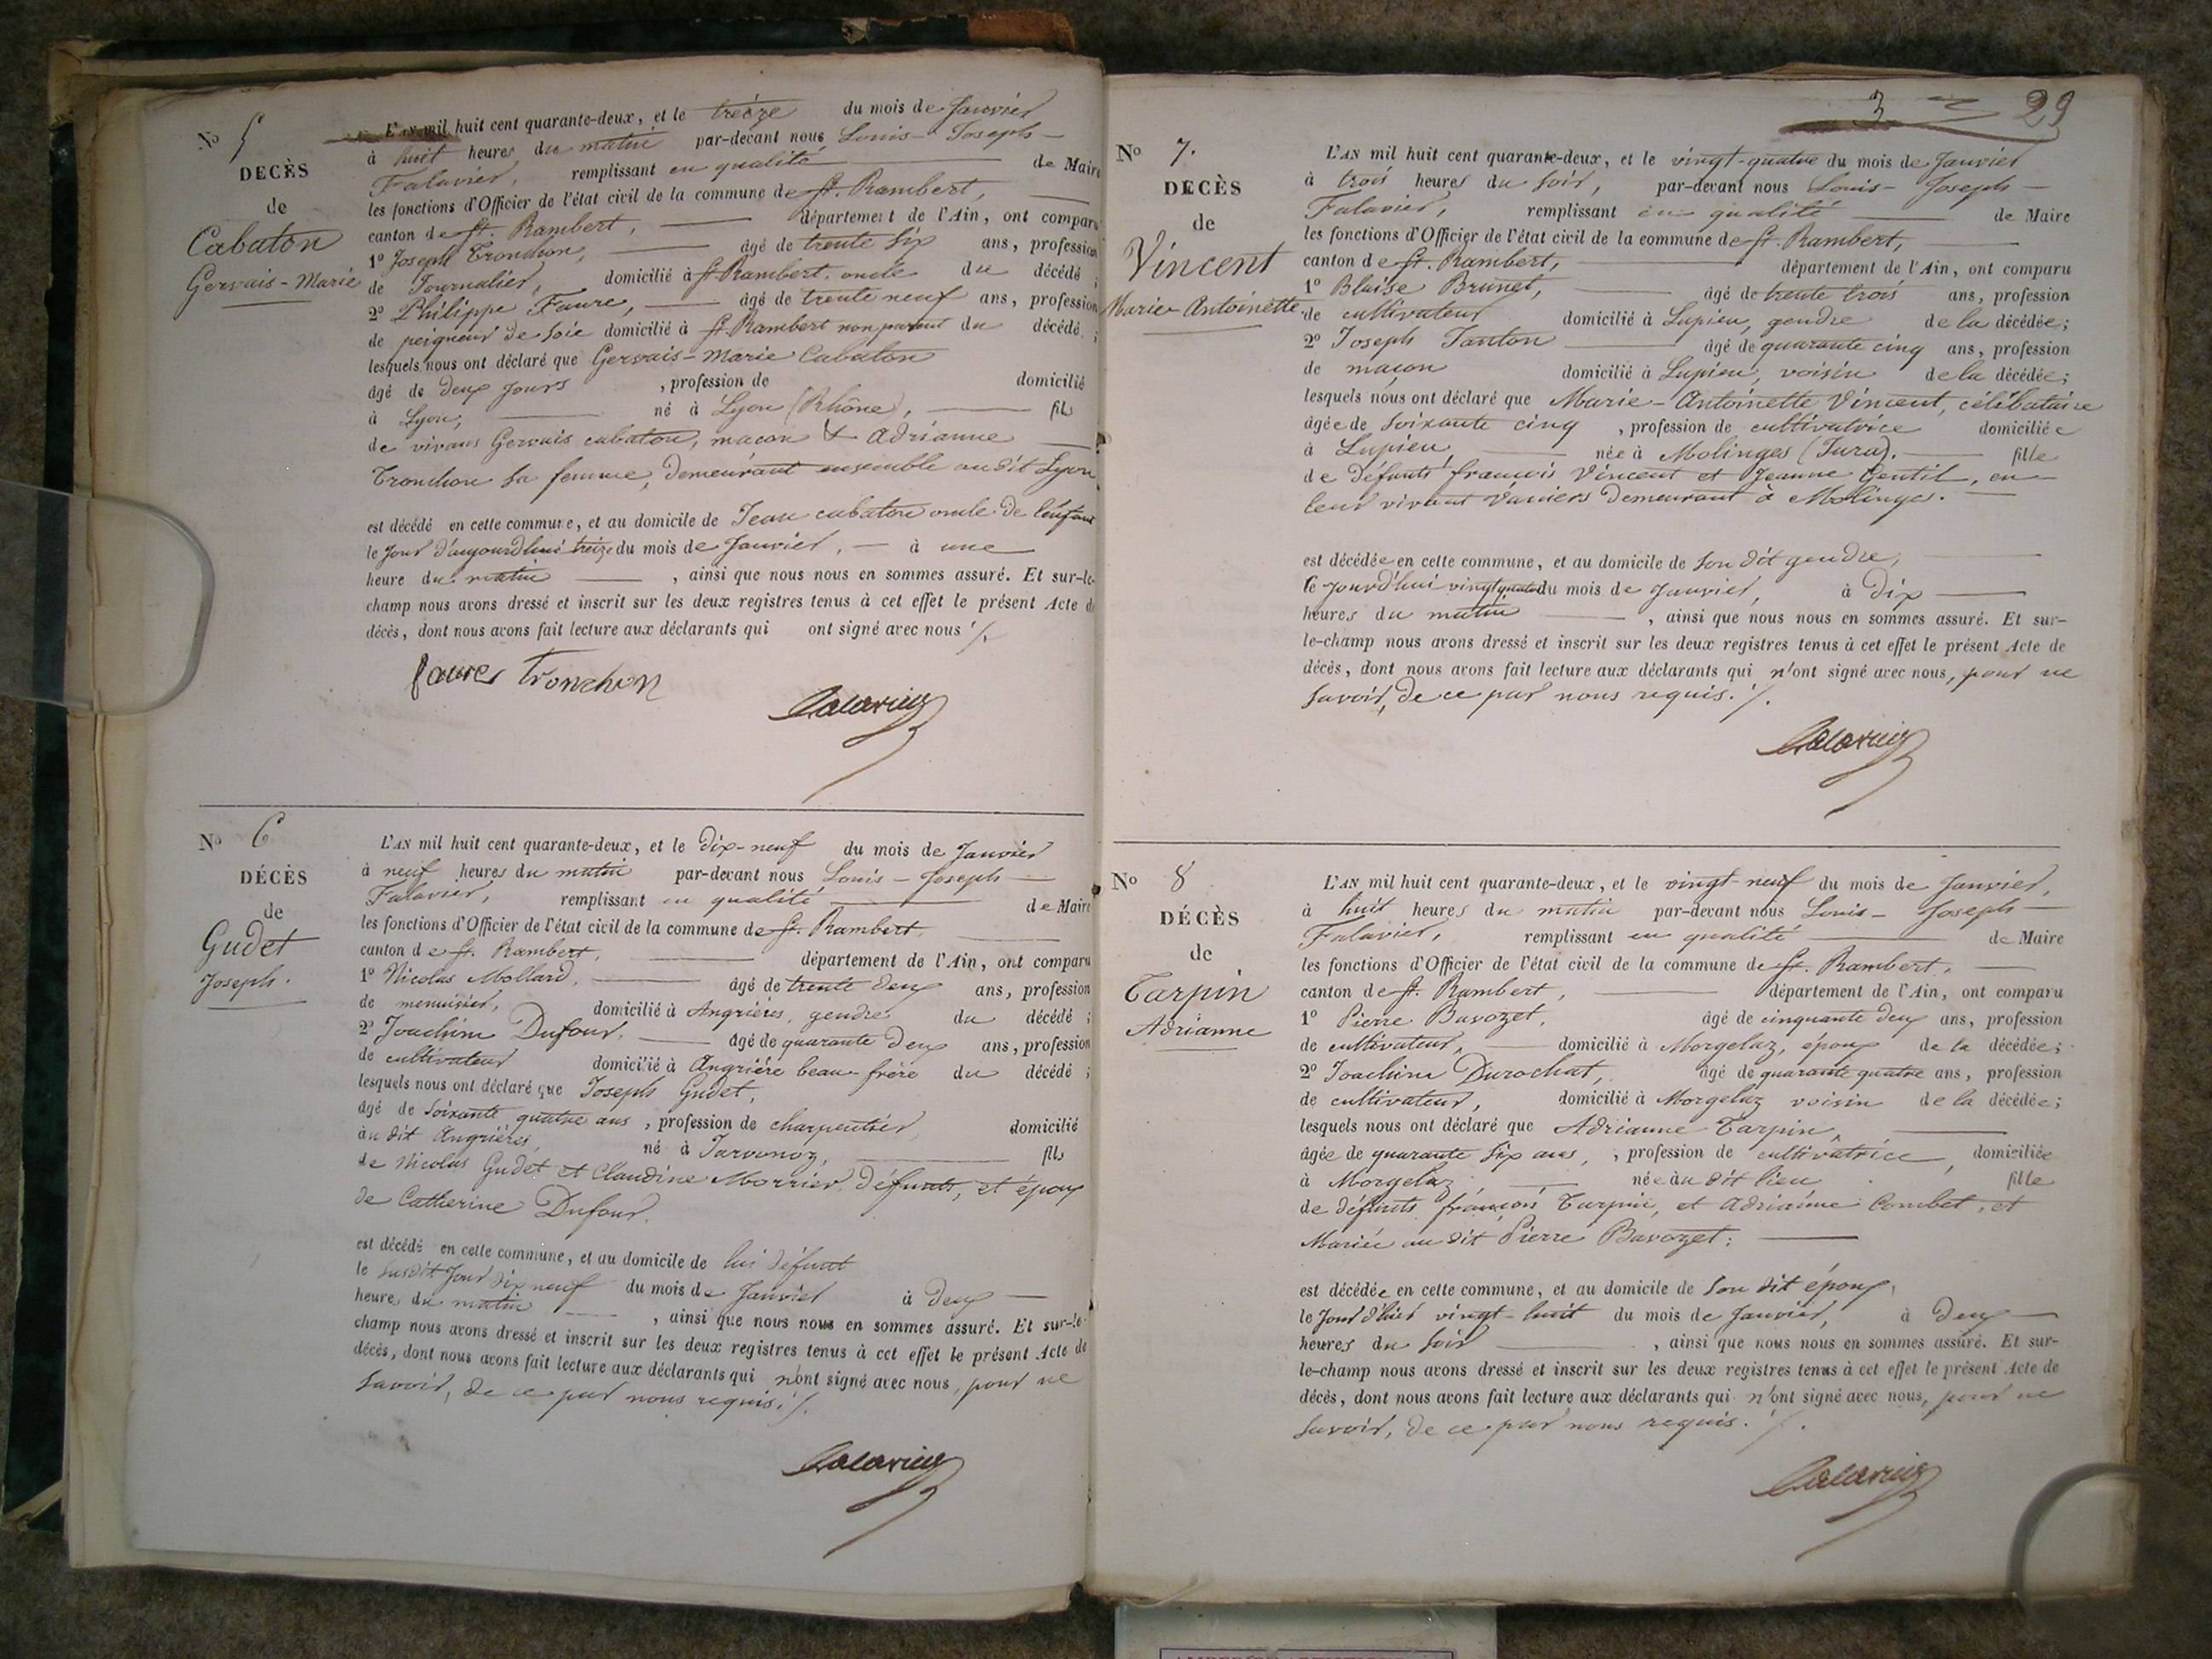 No 5
DÉCÈS
de
Cabaton
Gervais-Marie
L'AN mil huit cent quarante-deux, et le treize du mois de Janvier
à huit heures du matin par-devant nous Louis-Joseph
Falavier, remplissant en qualité de Maire
les fonctions d'Officier de l'état civil de la commune de St. Rambert,
canton de St. Rambert, département de l'Ain, ont comparu
1º Joseph Tronchon, âgé de trente six ans, profession
de Journalier, domicilié à St Rambert, oncle du décédé ;
2º Philippe Faure, âgé de trente neuf ans, profession
de peigneur de soie domicilié à St. Rambert non parent du décédé ;
lesquels nous ont déclaré que Gervais-Marie Cabaton
âgé de deux jours , profession de domicilié
à Lyon, né à Lyon (Rhône), fils
de vivans Gervais cabaton, macon & Adrianne
Tronchon sa femme, demeurant ensemble audit Lyon
est décédé en cette commune, et au domicile de Jean cabaton oncle de l'enfant
le Jour d'aujourdhui treize du mois de Janvier, à une
heure du matin , ainsi que nous nous en sommes assuré. Et sur-le-
champ nous avons dressé et inscrit sur les deux registres tenus à cet effet le présent Acte de
décès, dont nous avons fait lecture aux déclarants qui ont signé avec nous ./.
faure tronchon
Falavier
No 6
DÉCÈS
de
Gudet
Joseph.
L'AN mil huit cent quarante-deux, et le dix-neuf du mois de Janvier
à neuf heures du matin par-devant nous Louis-Joseph
Falavier, remplissant en qualité de Maire
les fonctions d'Officier de l'état civil de la commune de St. Rambert
canton de St. Rambert, département de l'Ain, ont comparu
1º Nicolas Mollard, âgé de trente deux ans, profession
de menuisier, domicilié à Angrières, gendre du décédé ;
2º Joachim Dufour, âgé de quarante deux ans, profession
de cultivateur domicilié à Angrière beau-frère du décédé ;
lesquels nous ont déclaré que Joseph Gudet,
âgé de soixante quatre ans , profession de charpentier domicilié
au dit Angrières, né à Jarvonoz, fils
de Nicolas Gudet et Claudine Morrier défunts, et époux
de Catherine Dufour.
est décédé en cette commune, et au domicile de lui défunt
le susdit Jour dix neuf du mois de Janvier à deux
heures du matin , ainsi que nous nous en sommes assuré. Et sur-le-
champ nous avons dressé et inscrit sur les deux registres tenus à cet effet le présent Acte de
décès, dont nous avons fait lecture aux déclarants qui n'ont signé avec nous, pour ne
savoir, de ce par nous requis ./.
Falavier
3 29
No 7.
DÉCÈS
de
Vincent
Marie-Antoinette
L'AN mil huit cent quarante-deux, et le vingt-quatre du mois de Janvier
à trois heures du soir, par-devant nous Louis-Joseph
Falavier, remplissant en qualité de Maire
les fonctions d'Officier de l'état civil de la commune de St. Rambert,
canton de St. Rambert, département de l'Ain, ont comparu
1º Blaise Brunet, âgé de trente trois ans, profession
de cultivateur domicilié à Lupieu, gendre de la décédée ;
2º Joseph Tanton âgé de quarante cinq ans, profession
de maçon domicilié à Lupieu, voisin de la décédée ;
lesquels nous ont déclaré que Marie-Antoinette Vincent, célibataire
âgée de soixante cinq , profession de cultivatrice domiciliée
à Lupieu, née à Molinges (Jura). fille
de défunts francois Vincent et Jeanne Gentil, en
leur vivant Vaniers demeurant à Molinges.
est décédée en cette commune, et au domicile de son dit gendre,
le jourd'hui vingt quatre du mois de Janvier, à dix
heures du matin , ainsi que nous nous en sommes assuré. Et sur-
le-champ nous avons dressé et inscrit sur les deux registres tenus à cet effet le présent Acte de
décès, dont nous avons fait lecture aux déclarants qui n'ont signé avec nous, pour ne
savoir, de ce par nous requis ./.
Falavier
No 8
DÉCÈS
de
Tarpin
Adrianne
L'AN mil huit cent quarante-deux, et le vingt-neuf du mois de Janvier,
à huit heures du matin par-devant nous Louis-Joseph
Falavier, remplissant en qualité de Maire
les fonctions d'Officier de l'état civil de la commune de St. Rambert,
canton de St. Rambert, département de l'Ain, ont comparu
1º Pierre Bavozet, âgé de cinquante deux ans, profession
de cultivateur, domicilié à Morgelaz, époux de la décédée ;
2º Joachim Durochat, âgé de quarante quatre ans, profession
de cultivateur, domicilié à Morgelaz voisin de la décédée ;
lesquels nous ont déclaré que Adrianne Tarpin,
âgée de quarante six ans, , profession de cultivatrice, domiciliée
à Morgelaz née au dit lieu fille
de défunts françois Tarpin, et Adrianne Combet, et
Mariée au dit Pierre Bavozet;
est décédée en cette commune, et au domicile de son dit époux,
le Jour d'hier vingt-huit du mois de Janvier, à deux
heures du soir , ainsi que nous nous en sommes assuré. Et sur-
le-champ nous avons dressé et inscrit sur les deux registres tenus à cet effet le présent Acte de
décès, dont nous avons fait lecture aux déclarants qui n'ont signé avec nous, pour ne
savoir, de ce par nous requis ./.
Falavier